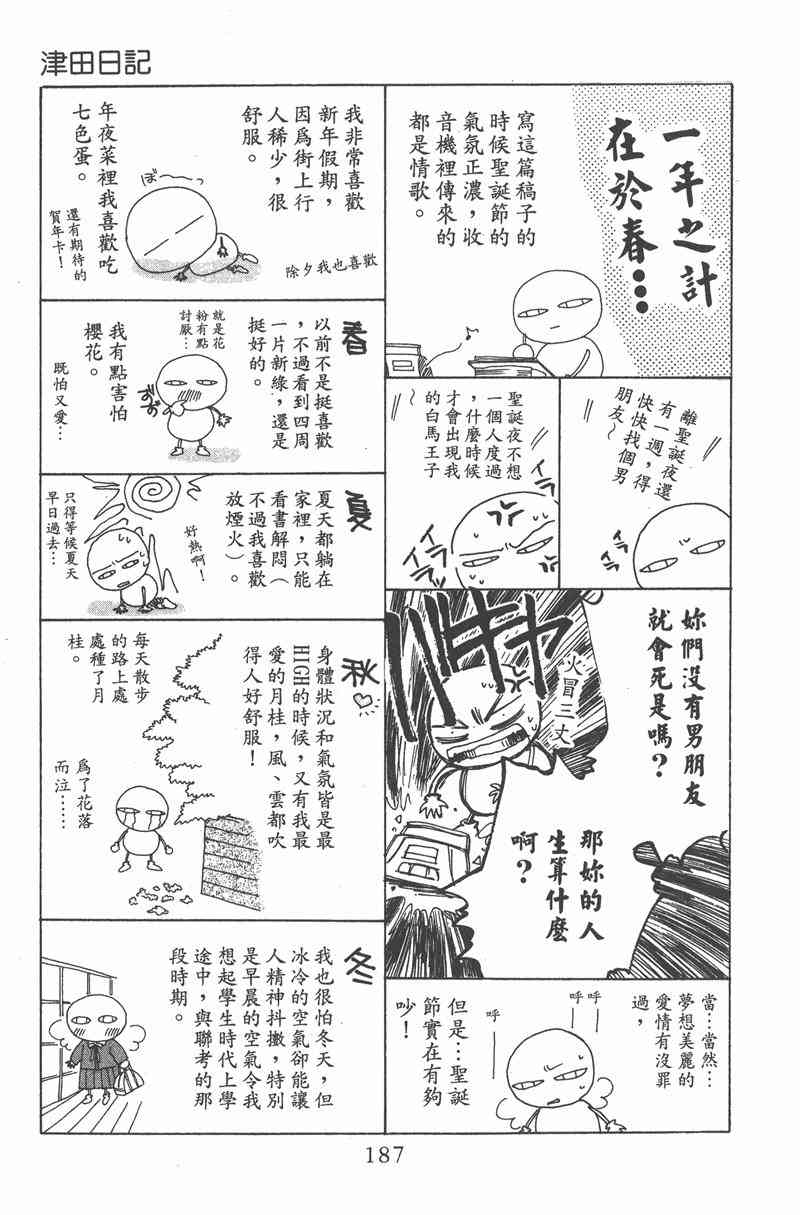 津田日記
一年之計
在於春…
寫這篇稿子的
時候聖誕節的
氣氛正濃，收
音機裡傳來的
都是情歌。
離聖誕夜還
有一週，得
快快找個男
朋友～
聖誕夜不想
一個人度過
，什麼時候
才會出現我
的白馬王子
イラ
イラ
妳們没有男朋友
就會死是嗎？
火冒三丈
ムキャーッ
那妳的人
生算什麼
啊？
當…當然…
夢想美麗的
愛情有沒罪
過，
呼
呼
呼
但是…聖誕
節實在有夠
吵！
我非常喜歡
新年假期，
因爲街上行
人稀少，很
舒服。
ぼ～っ
除夕我也喜歡
年夜菜裡我喜歡吃
七色蛋。
還有期待的
賀年卡！
春
以前不是挺喜歡
，不過看到四周
一片新綠，還是
挺好的。
就是花
粉有點
討厭…
ずず
我有點害怕
櫻花。
既怕又愛…
夏
夏天都躺在
家裡，只能
看書解悶（
不過我喜歡
放煙火）。
好熱啊！
只得等候夏天
早日過去…
秋♡
身體狀況和氣氛皆是最
HIGH的時候，又有我最
愛的月桂，風、雲都吹
得人好舒服！
每天散步
的路上處
處種了月
桂。
爲了花落
而泣……
冬
我也很怕冬天，但
冰冷的空氣卻能讓
人精神抖擻，特別
是早晨的空氣令我
想起學生時代上學
途中，與聯考的那
段時期。
187